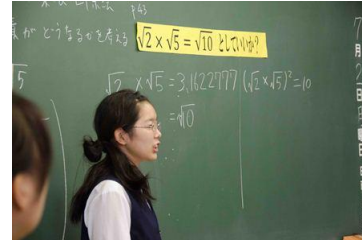 p43
がどうなるかを考える
√2 × √5 = √10 としていいか?
√5
√2 × √5 = 3.1622777
= √10
(√2 × √5)² = 10
7
月
2
日